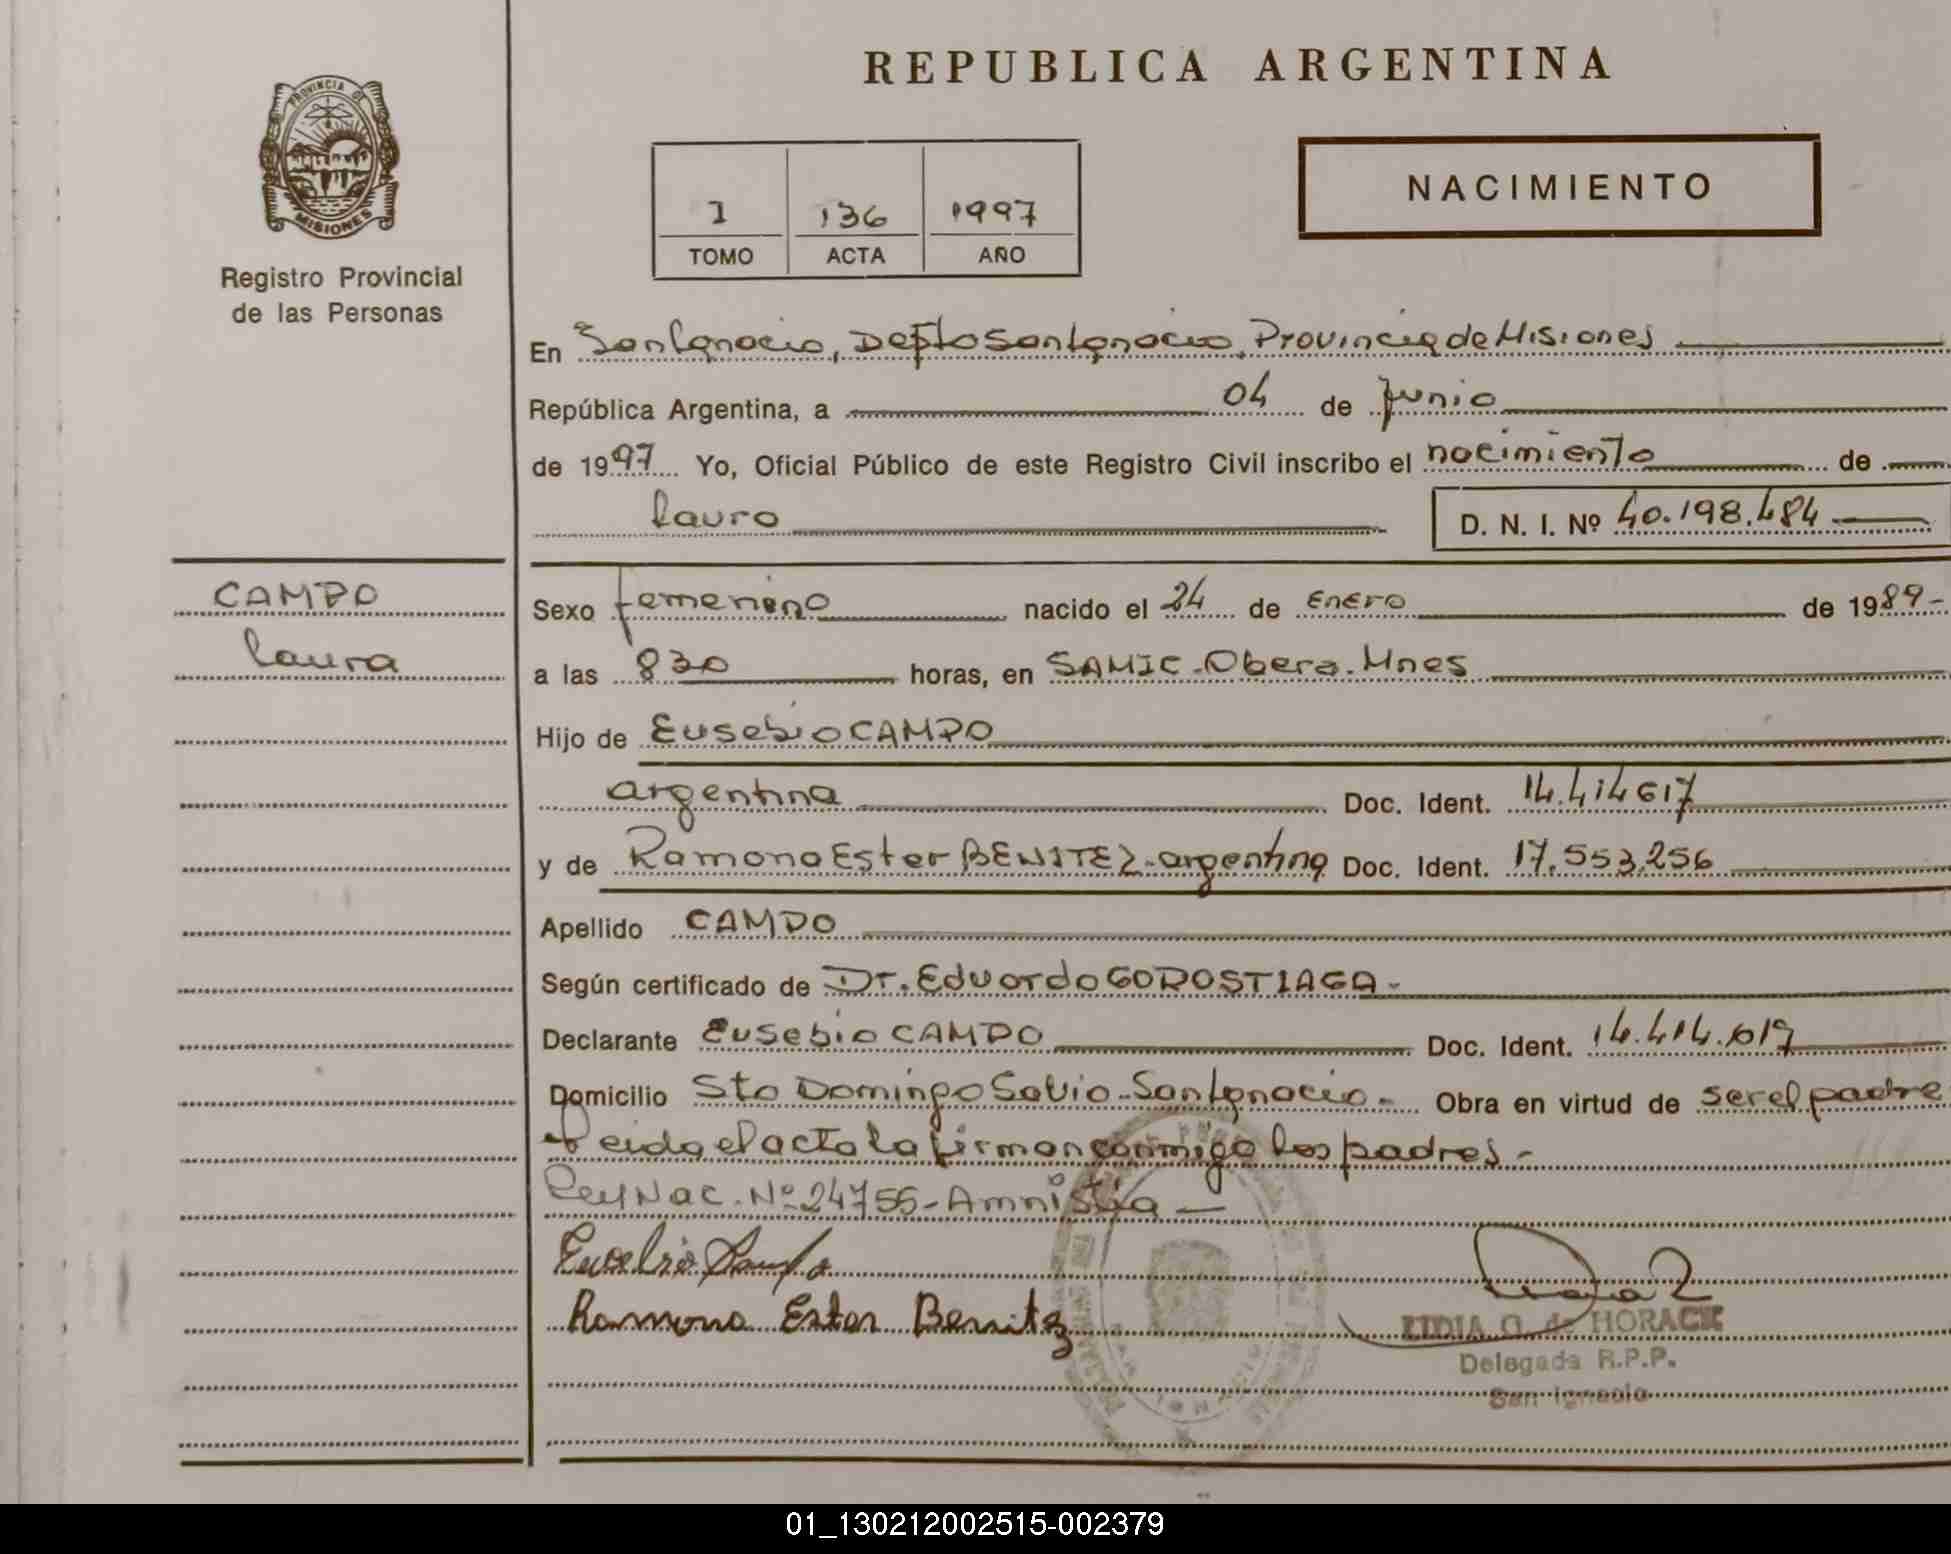 REPUBLICA ARGENTINA
PROVINCIA DE
MISIONES
Registro Provincial
de las Personas
NACIMIENTO
I 136 1997
TOMO ACTA AÑO
En San Ignacio, Depto San Ignacio, Provincia de Misiones
República Argentina, a 04 de Junio
de 1997 Yo, Oficial Público de este Registro Civil inscribo el nacimiento de
Laura D. N. I. Nº 40.198.484
CAMPO
Laura
Sexo femenino nacido el 24 de Enero de 1989-
a las 830 horas, en SAMIC-Obera-Mnes
Hijo de Eusebio CAMPO
argentina Doc. Ident. 14.414617
y de Ramona Ester BENITEZ-argentina Doc. Ident. 17.553.256
Apellido CAMPO
Según certificado de Dr. Eduardo GOROSTIAGA-
Declarante Eusebio CAMPO Doc. Ident. 14.414.617
Domicilio Sto Domingo Savio-San Ignacio- Obra en virtud de ser el padre
Leida el acta la firman conmigo los padres-
Ley Nac. Nº 24755-Amnistia
Eusebio Campo
Ramona Ester Benitez
LIDIA G. de HORACK
Delegada R.P.P.
San Ignacio
01_130212002515-002379